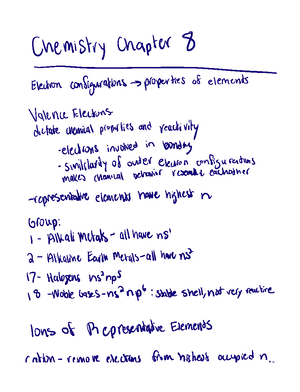 Chemistry Chapter 8
Electron configurations → properties of elements
Valence Electrons-
dictate chemical properties and reactivity
-electrons involved in bonding
-similarity of outer electron configurations
makes chemical behavior resemble eachother
-representative elements have highest n
Group:
1 - Alkali Metals - all have ns¹
2 - Alkaline Earth Metals - all have ns²
17- Halogens ns²np⁵
18 -Noble Gases- ns²np⁶ : stable shell, not very reactive
Ions of Representative Elements
cation - remove electrons from highest occupied n..